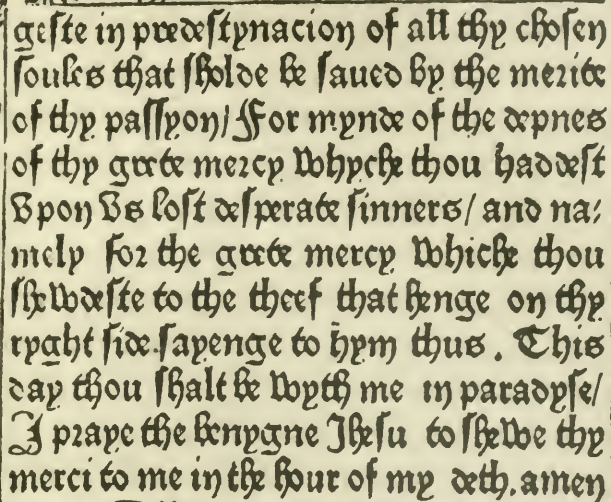 geste in predestynacion of all thy chosen
soules that sholde be saued by the merite
of thy passyon/ For mynde of the depnes
of thy grete mercy whyche thou haddest
vpon vs lost desperate sinners/ and na:
mely for the grete mercy whiche thou
shewdeste to the theef that henge on thy
ryght side.sayenge to hym thus. This
day thou shalt be wyth me in paradyse/
I praye the benygne Jhesu to shewe thy
merci to me in the hour of my deth.amen